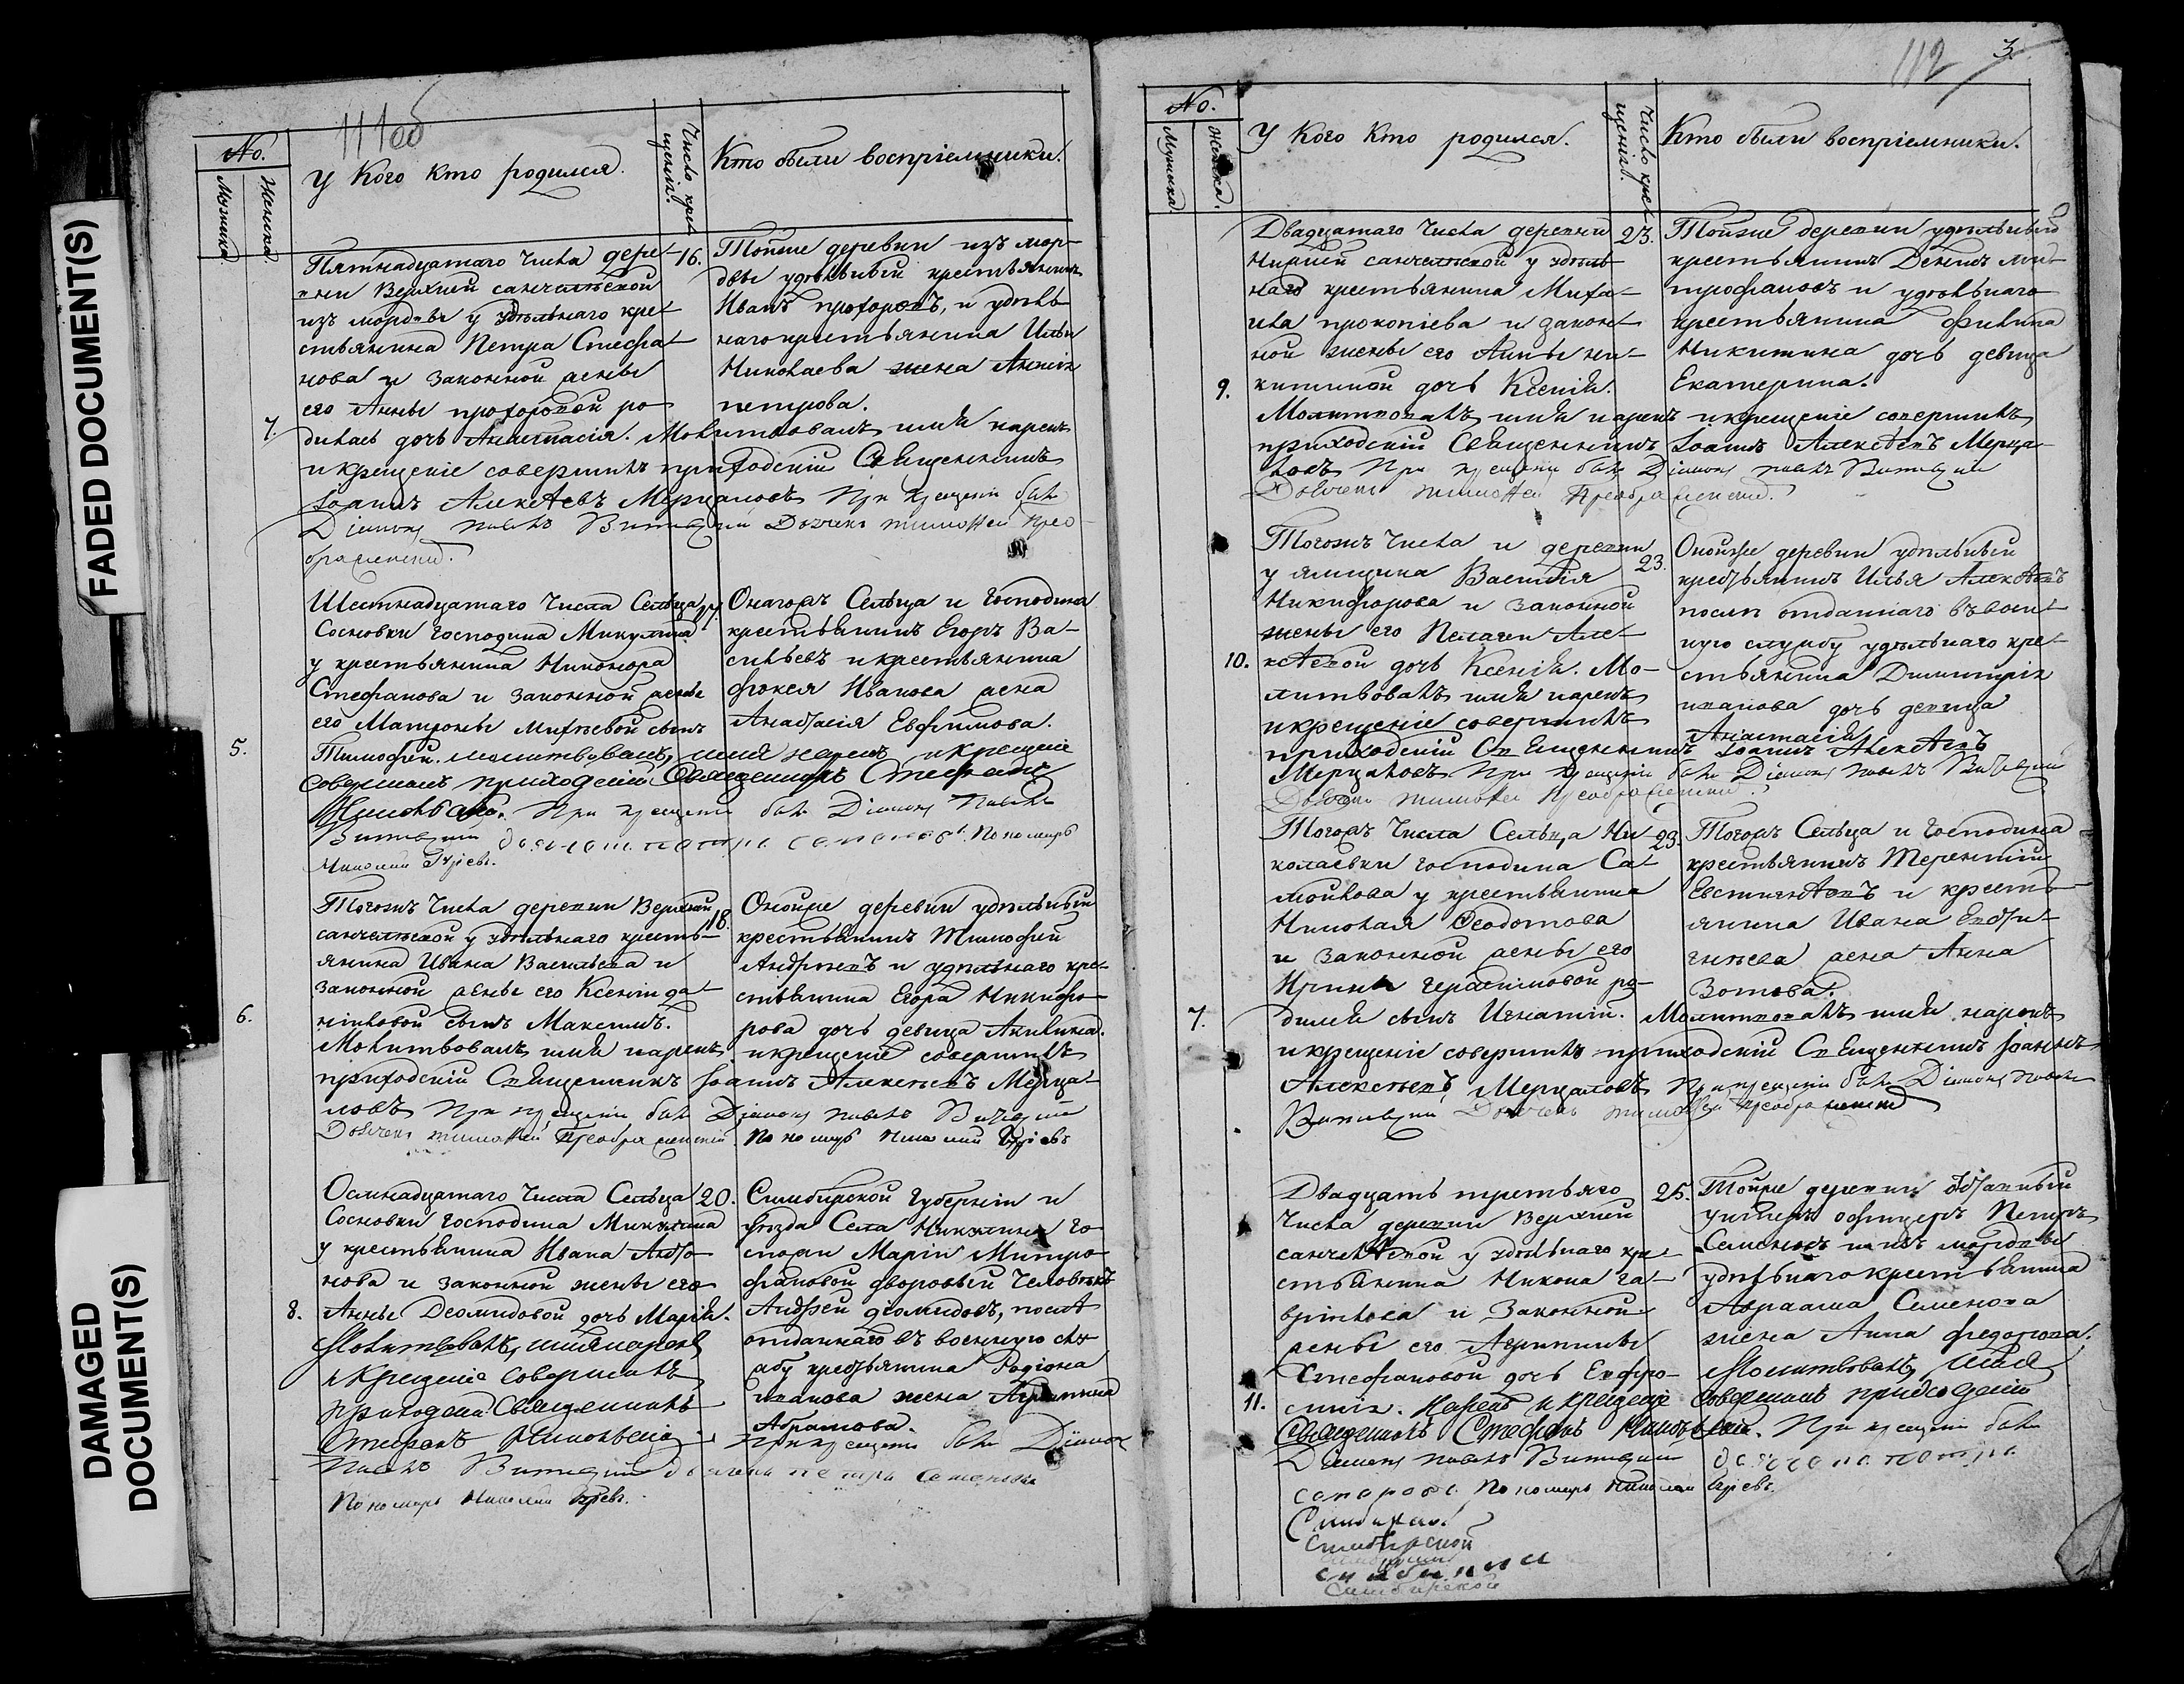 FADED DOCUMENT(S)
DAMAGED
DOCUMENT(S)
111об
No.
Мужеска.
Женска.
У кого кто родился.
Число кре-
щенія.
Кто были воспріемники.
7.
Пятнадцатаго числа дере-
вни Верхней санчелѣевской
изъ мордвы у удѣльнаго кре-
стьянина Петра Стефа-
нова и законной жены
его Анны прохоровой ро-
дилась дочь Анастасія. Молитвовалъ имя нарекъ
и крещеніе совершилъ приходскій Священникъ
Іоаннъ Алексѣевъ Мерцаловъ При крещеніи былъ
Діаконъ Павелъ Дьячекъ тимоѳей прео-
браженскій.
16.
Тойже деревни изъ мор-
двы удѣльный крестьянинъ
Иванъ прохоровъ, и удѣль-
наго крестьянина Ильи
Николаева жена Анисія
петрова.
5.
Шестнадцатаго числа Сельца
Сосновки господина Микулина
у крестьянина Никонора
Стефанова и законной жены
его Матроны михѣевой сынъ
Тимофей. молитвовалъ, имя нарекъ и крещеніе
совершилъ приходскій Священникъ Стефанъ
При крещеніи былъ Діаконъ Павелъ
Пономарь
Николай Гурьевъ.
17.
Онагожъ Сельца и Господина
крестьянинъ Егоръ Ва-
сильевъ и крестьянина
фокея Иванова жена
Анастасія Евфимова.
6.
Тогожъ числа деревни Верхней
санчелѣевской у удѣльнаго кресть-
янина Ивана Васильева и
законной жены его Ксеніи да-
ніиловой сынъ Максимъ.
Молитвовалъ имя нарекъ
и крещеніе совершилъ
приходскій Священникъ Іоаннъ Алексѣевъ Мерца-
ловъ При крещеніи былъ Діаконъ Павелъ
Дьячекъ тимоѳей Преображенскій Пономарь Николай Гурьевъ
18.
Онойже деревни удѣльный
крестьянинъ Тимофей
Андреевъ и удѣльнаго кре-
стьянина Егора Никифо-
рова дочь девица Акилина.
8.
Осмнадцатаго числа Сельца
Сосновки господина Микулина
у крестьянина Ивана Анто-
нова и законной жены его
Анны Деомидовой дочь Марія.
Молитвовалъ, имя нарекъ
и Крещеніе совершилъ
приходскій Священникъ
Стефанъ При крещеніи былъ Діаконъ
Павелъ дьячекъ петръ Семеновъ
Пономарь Николай Гурьевъ.
20.
Симбирской Губерніи и
уѣзда Села Никулина го-
спожи Маріи Митро-
фановой дворовый человѣкъ
Андрей деомидовъ, послѣ
отданнаго въ военную слу-
жбу крестьянина Родіона
иванова жена Агрипина
Абрамова.
112
3.
No.
Мужеска.
Женска.
У кого кто родился.
Число кре-
щенія.
Кто были воспріемники.
9.
Двадцатаго числа деревни
Нижней санчелѣевской у удѣль-
наго крестьянина Миха-
ила прокопіева и закон-
ной жены его Анны ни-
китиной дочь Ксенія.
Молитвовалъ имя нарекъ и крещеніе совершилъ
приходскій Священникъ Іоаннъ Алексѣевъ Мерца-
ловъ При крещеніи былъ Діаконъ павелъ
Дьячекъ тимоѳей Преображенскій.
23.
Тойже деревни удѣльный
крестьянинъ Денисъ ми-
трофановъ и удѣльнаго
крестьянина филипа
Никитина дочь девица
Екатерина.
10.
Тогожъ числа и деревни
у ямщика Василія
Никифорова и законной
жены его Пелагеи Але-
ксѣевой дочь Ксенія. Мо-
литвовалъ имя нарекъ
и крещеніе совершилъ
приходскій Священникъ Іоаннъ Алексѣевъ
Мерцаловъ При крещеніи былъ Діаконъ павелъ
Дьячекъ тимоѳей Преображенскій.
23.
Онойже деревни удѣльный
крестьянинъ Илья Алексѣевъ
послѣ отданнаго въ воен-
ную службу удѣльнаго кре-
стьянина Димитрія
иванова дочь девица
Анастасія
7.
Тогожъ числа Сельца Ни-
колаевки господина Са-
мойлова у крестьянина
Николая Ѳеодотова
и законной жены его
Ирины герасимовой ро-
дился сынъ Игнатій. Молитвовалъ имя нарекъ
и крещеніе совершилъ приходскій Священникъ Іоаннъ
Алексѣевъ Мерцаловъ При крещеніи былъ Діаконъ павелъ
Дьячекъ тимоѳей Преображенскій
23.
Тогожъ Сельца и Господина
крестьянинъ Терентій
Евстигнѣевъ и кресть-
янина Ивана Евсти-
гнѣева жена Анна
Зотова.
11.
Двадцать третьяго
числа деревни Верхней
санчелѣевской у удѣльнаго кре-
стьянина Никона га-
врилова и законной
жены его Агрипины
Стефановой дочь Евфро-
синія. Молитвовалъ, имя
нарекъ и крещеніе совершилъ приходскій
Священникъ Стефанъ При крещеніи былъ
Діаконъ павелъ
Пономарь Николай Гурьевъ.
25.
Тойже деревни отставный
унтеръ офицеръ Петръ
Семеновъ и изъ мордвы
удѣльнаго крестьянина
Авраама Семенова
жена Анна федорова.
Симбирской
Симбирской